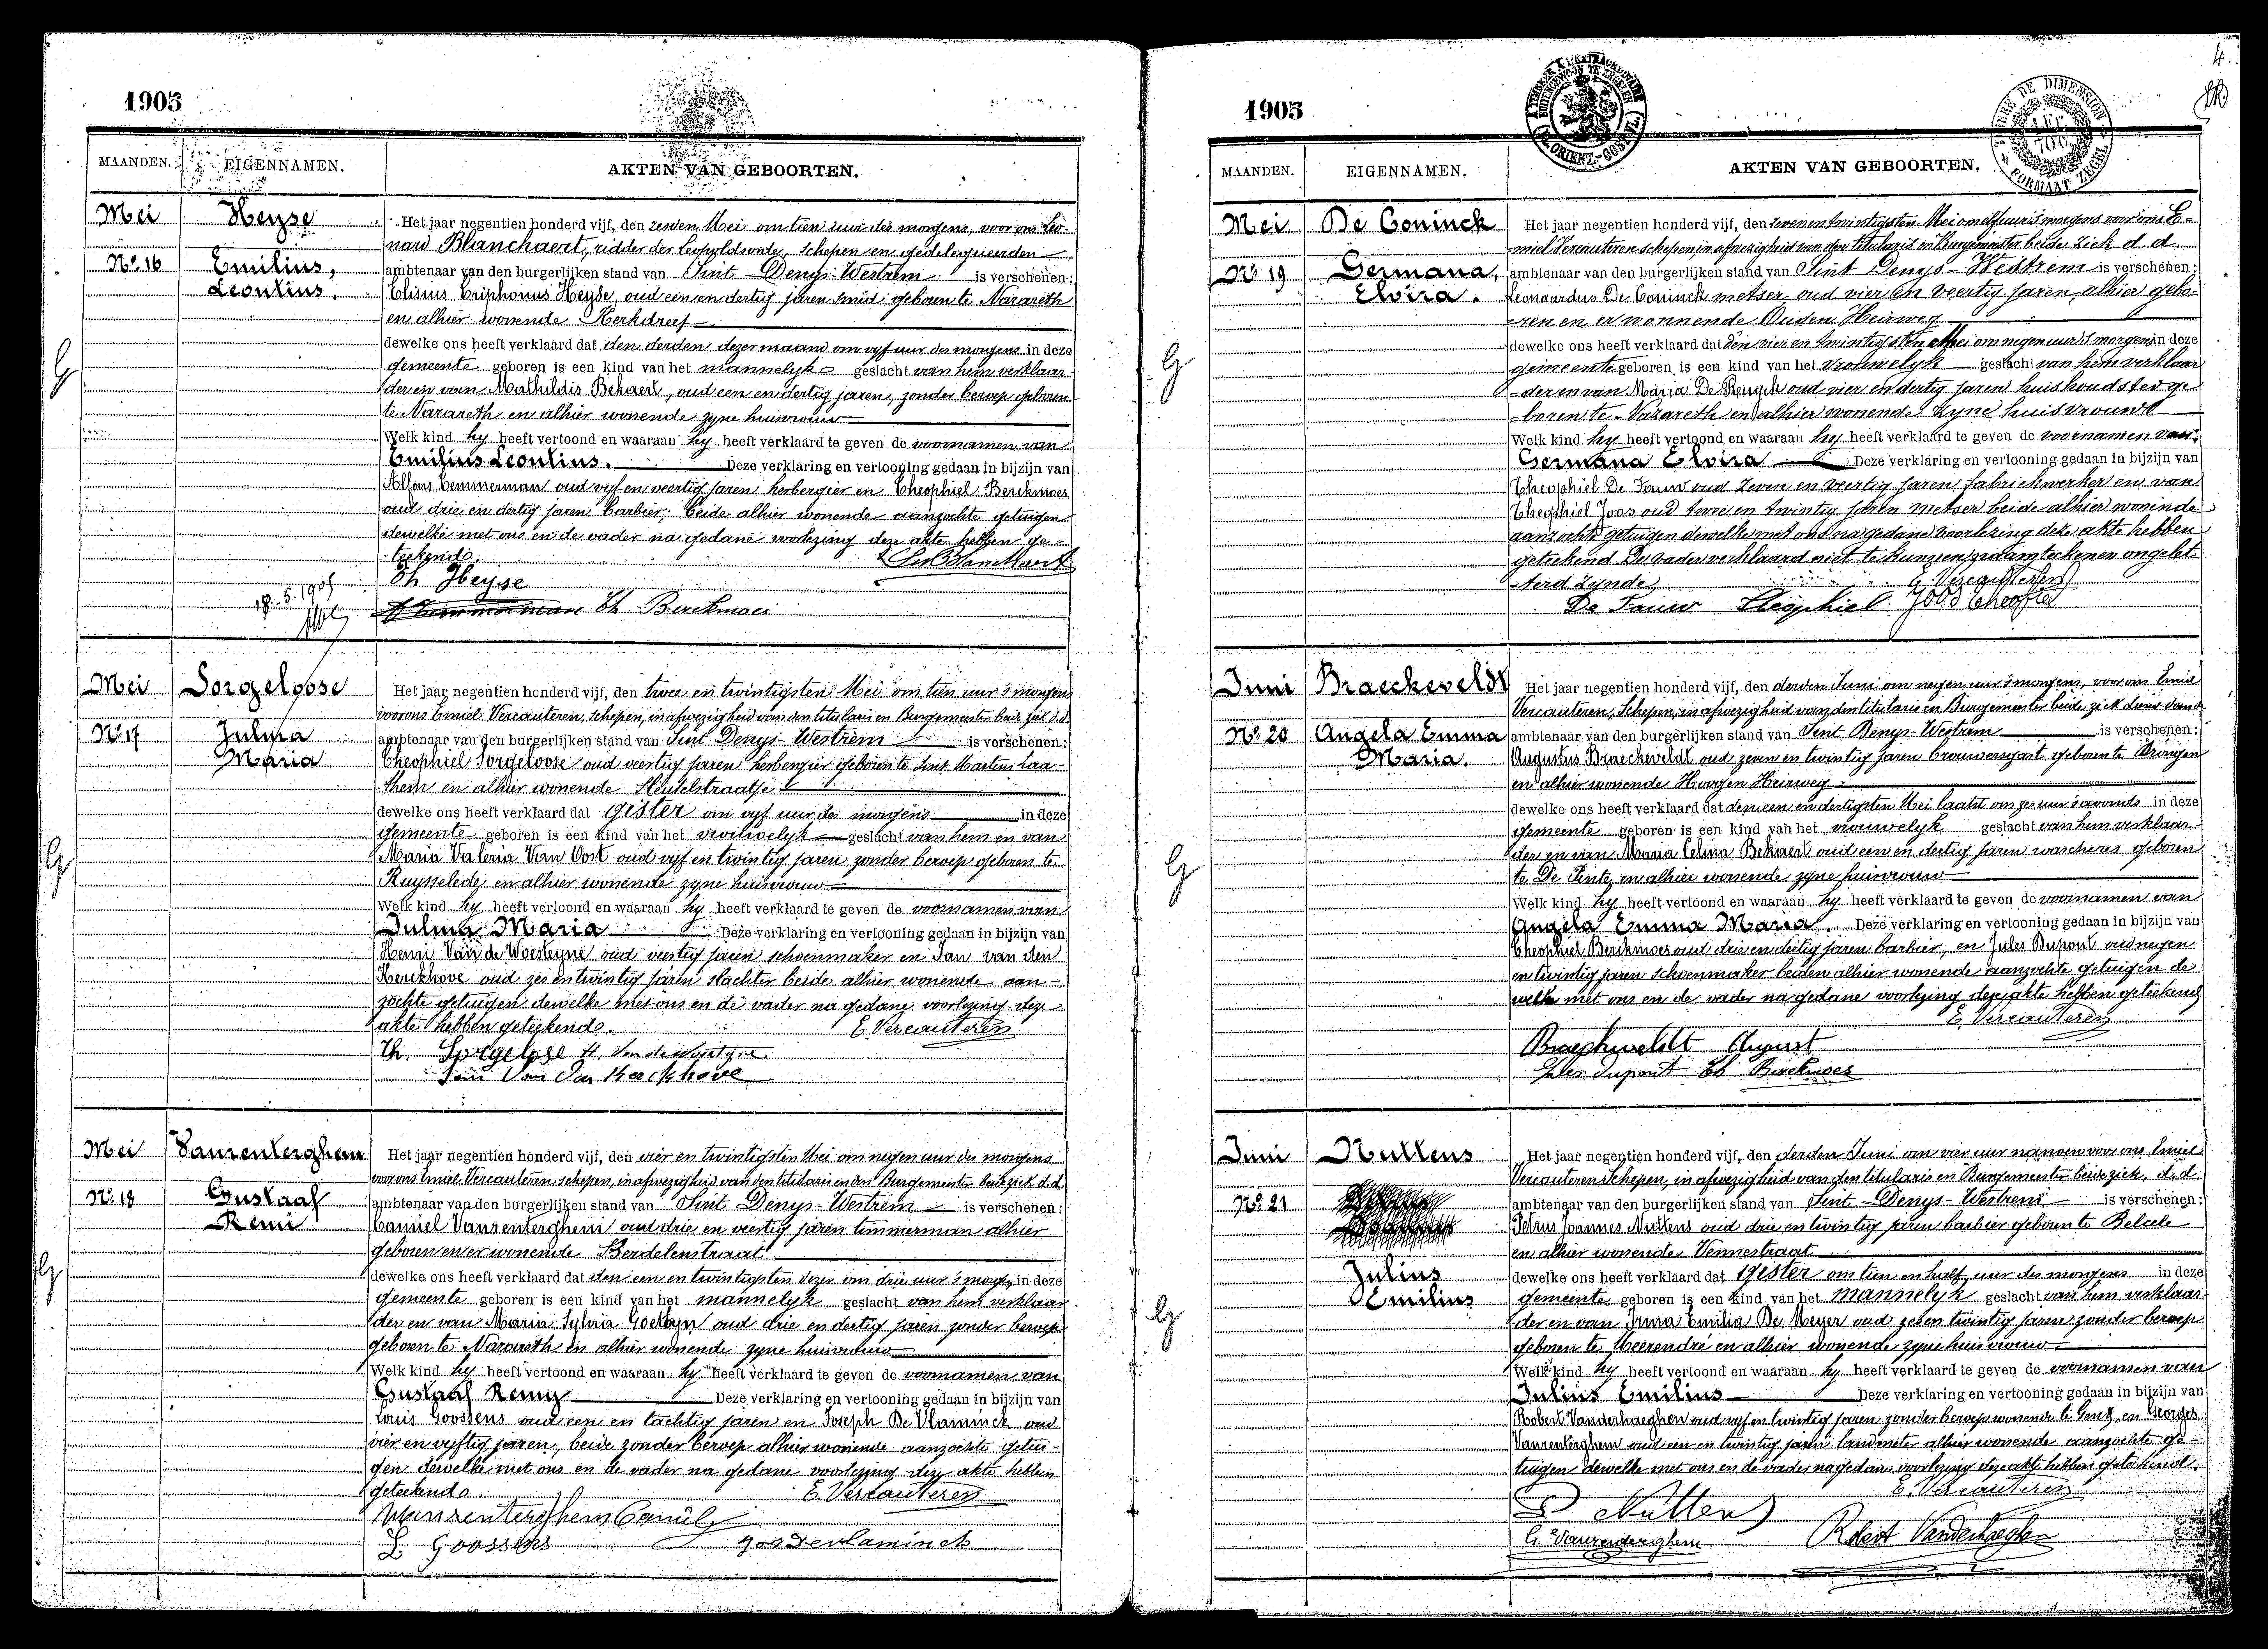 1905
MAANDEN. EIGENNAMEN. AKTEN VAN GEBOORTEN.
Mei Heyse
Het jaar negentien honderd vijf, den zesden Mei om tien uur des morgens, voor ons Leo-
nard Blanchaert, ridder der Leopoldsorde, schepen en gedelegueerden
No. 16 Emilius, Leontius.
ambtenaar van den burgerlijken stand van Sint Denys-Westrem is verschenen:
Elisius Criphonus Heyse, oud een en dertig jaren smid geboren te Nazareth
en alhier wonende Kerkdreef
dewelke ons heeft verklaard dat den derden dezer maand om vyf uur des morgens in deze
gemeente geboren is een kind van het mannelyk geslacht van hem verklaar-
der en van Mathildis Bekaert, oud een en dertig jaren, zonder beroep geboren
te Nazareth en alhier wonende zyne huisvrouw
Welk kind hy heeft vertoond en waaraan hy heeft verklaard te geven de voornamen van
Emilius Leontius. Deze verklaring en vertooning gedaan in bijzijn van
Alfons Temmerman oud vyf en veertig jaren herbergier en Theophiel Berckmoes
oud drie en dertig jaren barbier, beide alhier wonende aanzochte getuigen
dewelke met ons en de vader na gedane voorlezing deze akte hebben ge-
teekend.
Leo Blanchaert
Th Heyse
18.5.1905
A Temmerman Th Berckmoes
Mei Sorgeloose
Het jaar negentien honderd vijf, den twee en twintigsten Mei om tien uur 's morgens
voor ons Emiel Vercauteren, schepen, in afwezigheid van den titularis en Burgemeester beide ziek d.d.
No. 17 Julma Maria
ambtenaar van den burgerlijken stand van Sint Denys-Westrem is verschenen:
Theophiel Sorgeloose oud veertig jaren herbergier geboren te Sint Martens Laa-
them en alhier wonende Sleutelstraatje
dewelke ons heeft verklaard dat gister om vyf uur des morgens in deze
gemeente geboren is een kind van het vrouwelyk geslacht van hem en van
Maria Valeria Van Oost oud vyf en twintig jaren zonder beroep geboren te
Ruysselede en alhier wonende zyne huisvrouw
Welk kind hy heeft vertoond en waaraan hy heeft verklaard te geven de voornamen van
Julma Maria Deze verklaring en vertooning gedaan in bijzijn van
Henri Van de Woesteyne oud veertig jaren schoenmaker en Jan van den
Kerckhove oud zes en twintig jaren slachter beide alhier wonende aan-
zochte getuigen dewelke met ons en de vader na gedane voorlezing deze
akte hebben geteekend.
E. Vercauteren
Th. Sorgeloose H. Van de Woestyne
Jan Van Den Kerckhove
Mei Vanrenterghem
Het jaar negentien honderd vijf, den vier en twintigsten Mei om negen uur des morgens
voor ons Emiel Vercauteren schepen, in afwezigheid van den titularis en den Burgemeester beide ziek d.d.
No. 18 Gustaaf Remi
ambtenaar van den burgerlijken stand van Sint Denys-Westrem is verschenen:
Camiel Vanrenterghem oud drie en veertig jaren timmerman alhier
geboren en er wonende Berdelenstraat
dewelke ons heeft verklaard dat den een en twintigsten dezer om drie uur 's morg. in deze
gemeente geboren is een kind van het mannelyk geslacht van hem verklaar
der en van Maria Sylvia Goetayn oud drie en dertig jaren zonder beroep
geboren te Nazareth en alhier wonende zyne huisvrouw
Welk kind hy heeft vertoond en waaraan hy heeft verklaard te geven de voornamen van
Gustaaf Remy Deze verklaring en vertooning gedaan in bijzijn van
Louis Goossens oud een en tachtig jaren en Joseph De Vlaminck oud
vier en vyftig jaren, beide zonder beroep alhier wonende aanzochte getui-
gen dewelke met ons en de vader na gedane voorlezing deze akte hebben
geteekend.
E. Vercauteren
Vanrenterghem Camiel
L. Goossens Jos Devlaminck
4.
1905
TIMBRE DE DIMENSION
FORMAAT ZEGEL
MAANDEN. EIGENNAMEN. AKTEN VAN GEBOORTEN.
Mei De Coninck
Het jaar negentien honderd vijf, den zeven en twintigsten Mei om elf uur 's morgens voor ons E-
miel Vercauteren schepen, in afwezigheid van den titularis en Burgemeester beide ziek d.d.
No. 19 Germana, Elvira.
ambtenaar van den burgerlijken stand van Sint Denys-Westrem is verschenen:
Leonardus De Coninck metser oud vier en veertig jaren, alhier gebo-
ren en er wonnende Ouden Heirweg
dewelke ons heeft verklaard dat den vier en twintigsten Mei om negen uur 's morgens in deze
gemeente geboren is een kind van het vrouwelyk geslacht van hem verklaar
der en van Maria De Ruyck oud vier en dertig jaren huishoudster ge
boren te Nazareth en alhier wonende zyne huisvrouw
Welk kind hy heeft vertoond en waaraan hy heeft verklaard te geven de voornamen van:
Germana Elvira Deze verklaring en vertooning gedaan in bijzijn van
Theophiel De Pauw oud zeven en veertig jaren fabriekwerker en van
Theophiel Joos oud twee en twintig jaren metser beide alhier wonende
aanzochte getuigen dewelke met ons na gedane voorlezing deze akte hebben
geteekend. De vader verklaard niet te kunnen naamteekenen ongelet-
terd zynde
E. Vercauteren
De Pauw Theophiel Joos Theofiel
Juni Braeckeveldt
Het jaar negentien honderd vijf, den derden Juni om negen uur 's morgens, voor ons Emiel
Vercauteren, Schepen, in afwezigheid van den titularis en Burgemeester beide ziek
No. 20 Angela Emma Maria.
ambtenaar van den burgerlijken stand van Sint Denys-Westrem is verschenen:
Augustus Braeckeveldt oud zeven en twintig jaren brouwersgast geboren te Drongen
en alhier wonende Hoogen Heirweg
dewelke ons heeft verklaard dat den een en dertigsten Mei laatst om zes uur 's avonds in deze
gemeente geboren is een kind van het vrouwelyk geslacht van hem verklaar-
der en van Maria Celina Bekaert oud een en dertig jaren wascheres geboren
te De Pinte en alhier wonende zyne huisvrouw
Welk kind hy heeft vertoond en waaraan hy heeft verklaard te geven de voornamen van
Angela Emma Maria. Deze verklaring en vertooning gedaan in bijzijn van
Theophiel Berckmoes oud drie en dertig jaren barbier, en Jules Dupont oud negen
en twintig jaren schoenmaker beiden alhier wonende aanzochte getuigen de
welke met ons en de vader na gedane voorlezing deze akte hebben geteekend
E. Vercauteren
Braeckeveldt August
Jules Dupont Th Berckmoes
Juni Nuttens
Het jaar negentien honderd vijf, den derden Juni om vier uur namen voor ons Emiel
Vercauteren schepen, in afwezigheid van den titularis en Burgemeester beide ziek, d.d.
No. 21
ambtenaar van den burgerlijken stand van Sint Denys-Westrem is verschenen:
Petrus Joannes Nuttens oud drie en twintig jaren barbier geboren te Belcele
en alhier wonende Vennestraat
Julius Emilius
dewelke ons heeft verklaard dat gister om tien en half uur des morgens in deze
gemeente geboren is een kind van het mannelyk geslacht van hem verklaar-
der en van Irma Emilia De Meyer oud zes en twintig jaren zonder beroep
geboren te Meerendré en alhier wonende zyne huisvrouw
Welk kind hy heeft vertoond en waaraan hy heeft verklaard te geven de voornamen van
Julius Emilius Deze verklaring en vertooning gedaan in bijzijn van
Robert Vanderhaeghen oud vyf en twintig jaren zonder beroep wonende te Gent, en Georges
Vanrenterghem oud een en twintig jaren landmeter alhier wonende aanzochte ge-
tuigen dewelke met ons en de vader na gedane voorlezing deze akte hebben geteekend.
E. Vercauteren
P Nuttens
G. Vanrenterghem Robert Vanderhaeghen